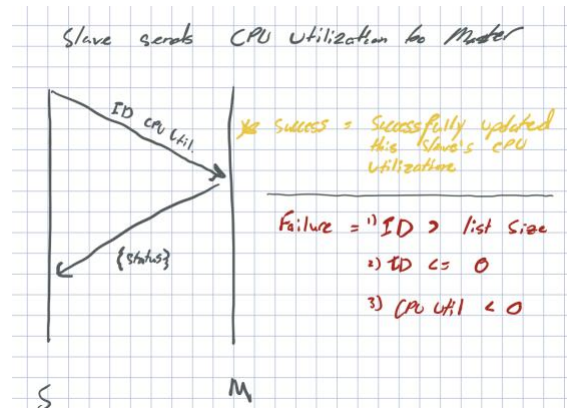 Slave sends CPU Utilization to Master
ID CPU Util.
* Success = Successfully updated
this slave's CPU
utilization
Failure = 1) ID > list size
2) ID <= 0
3) CPU util < 0
{status}
S
M